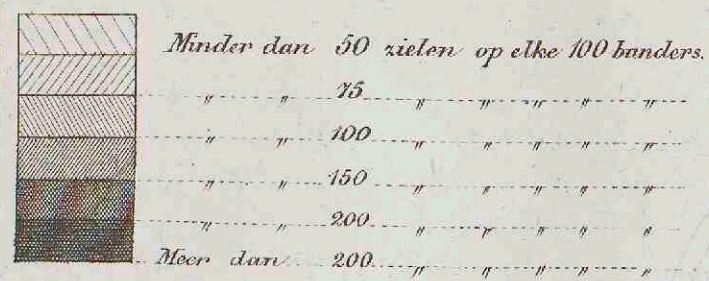 Minder dan 50 zielen op elke 100 bunders.
" " 75 " " " " "
" " 100 " " " " "
" " 150 " " " " "
" " 200 " " " " "
Meer dan 200 " " " " "